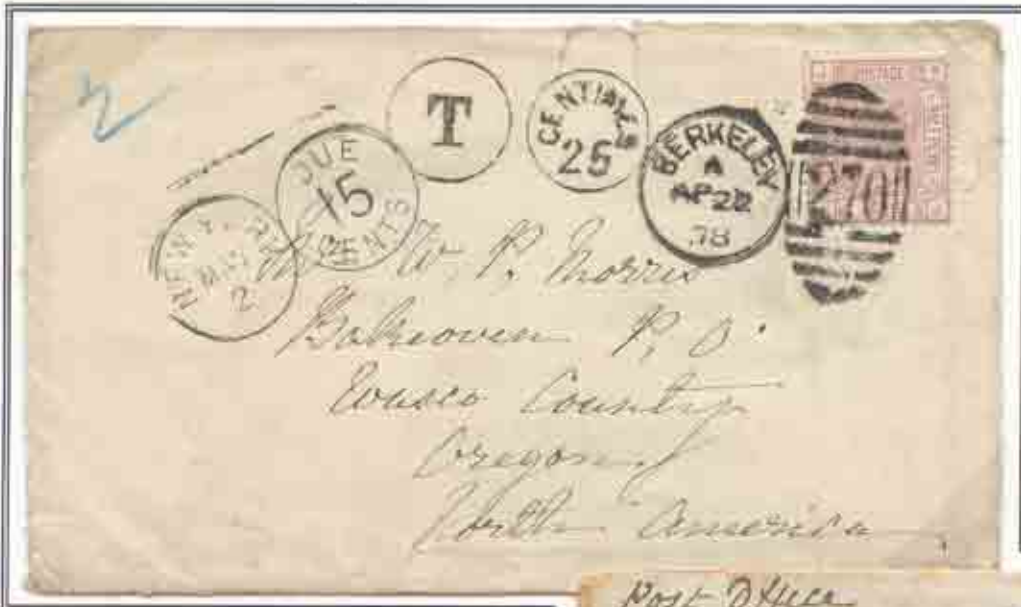 2
T
CENTIMES
25
BERKELEY
A
AP 22
78
270
POSTAGE
DUE
15
CENTS
NEW YORK
MAY
2
W. P. Morris
Bakeoven P. O.
Wasco County
Oregon
North America
Post Office